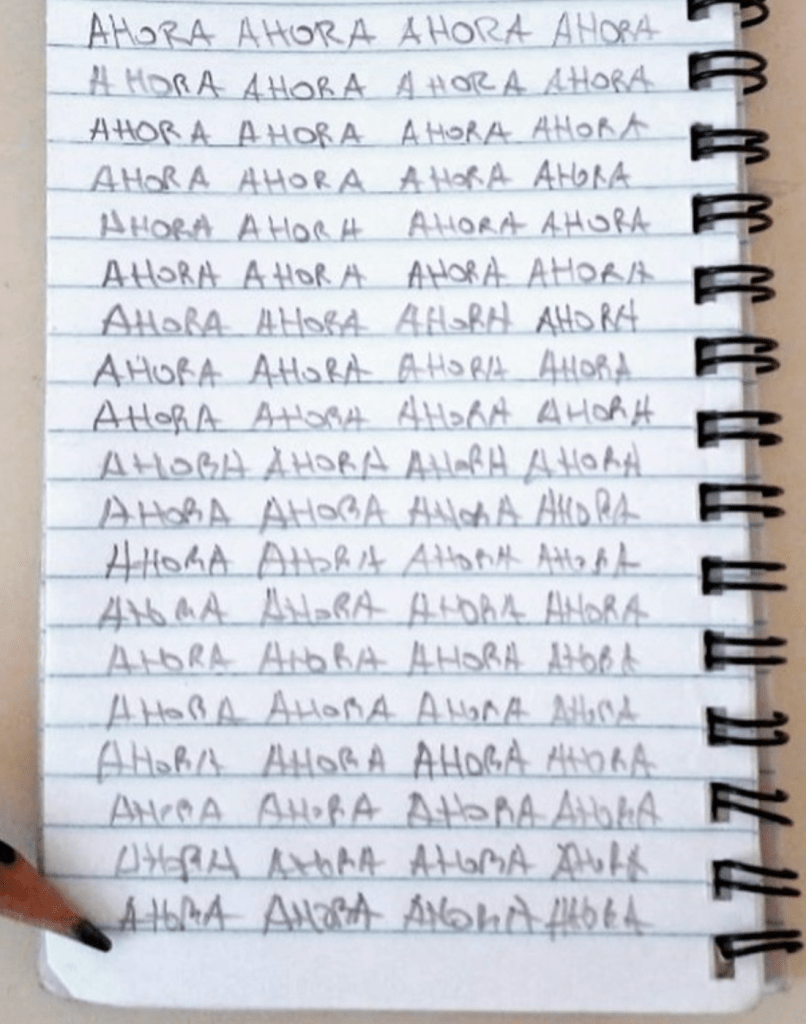 AHORA AHORA AHORA AHORA
AHORA AHORA AHORA AHORA
AHORA AHORA AHORA AHORA
AHORA AHORA AHORA AHORA
AHORA AHORA AHORA AHORA
AHORA AHORA AHORA AHORA
AHORA AHORA AHORA AHORA
AHORA AHORA AHORA AHORA
AHORA AHORA AHORA AHORA
AHORA AHORA AHORA AHORA
AHORA AHORA AHORA AHORA
AHORA AHORA AHORA AHORA
AHORA AHORA AHORA AHORA
AHORA AHORA AHORA AHORA
AHORA AHORA AHORA AHORA
AHORA AHORA AHORA AHORA
AHORA AHORA AHORA AHORA
AHORA AHORA AHORA AHORA
AHORA AHORA AHORA AHORA